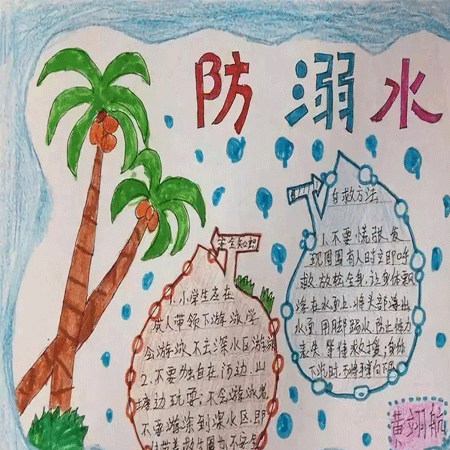 防溺水
安全知识
1.小学生应在
成人带领下游泳学
会游泳
2.不要独自在河边、山
塘边玩耍;不
不要游泳到深水区.即
自救方法
1.不要慌张,发
现周围有人时立即呼
救,放松全身,让身体飘
浮在水面上,将头部浮出
水面,用脚踢水,防止体力
丧失,等待救援;身体
下沉时,
黄翊航